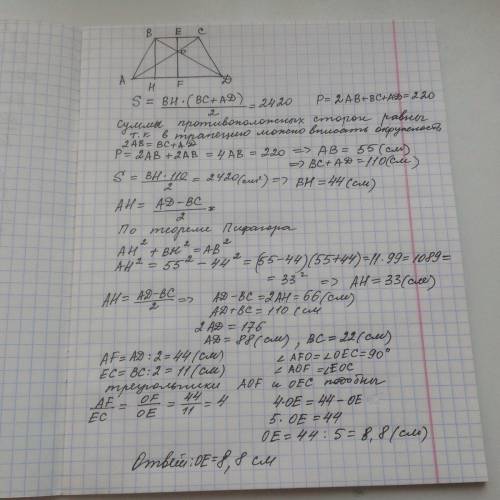 B E C
O
A H F D
S = BH·(BC+AD)/2 = 2420 P = 2AB+BC+AD = 220
Суммы противоположных сторон равны
т.к в трапецию можно вписать окружность
2AB = BC+AD
P = 2AB + 2AB = 4AB = 220 => AB = 55 (см)
=> BC + AD = 110 (см)
S = BH·110/2 = 2420 (см²) => BH = 44 (см)
AH = AD-BC/2
По теореме Пифагора
AH² + BH² = AB²
AH² = 55² - 44² = (55-44)(55+44) = 11·99 = 1089 =
= 33² => AH = 33 (см)
AH = AD-BC/2 => AD-BC = 2AH = 66 (см)
AD+BC = 110 см
2AD = 176
AD = 88 (см), BC = 22 (см)
AF = AD : 2 = 44 (см) ∠AFO = ∠OEC = 90°
EC = BC : 2 = 11 (см) ∠AOF = ∠EOC
треугольники AOF и OEC подобны
AF/EC = OF/OE = 44/11 = 4 4·OE = 44 - OE
5·OE = 44
OE = 44 : 5 = 8,8 (см)
Ответ: OE = 8,8 см